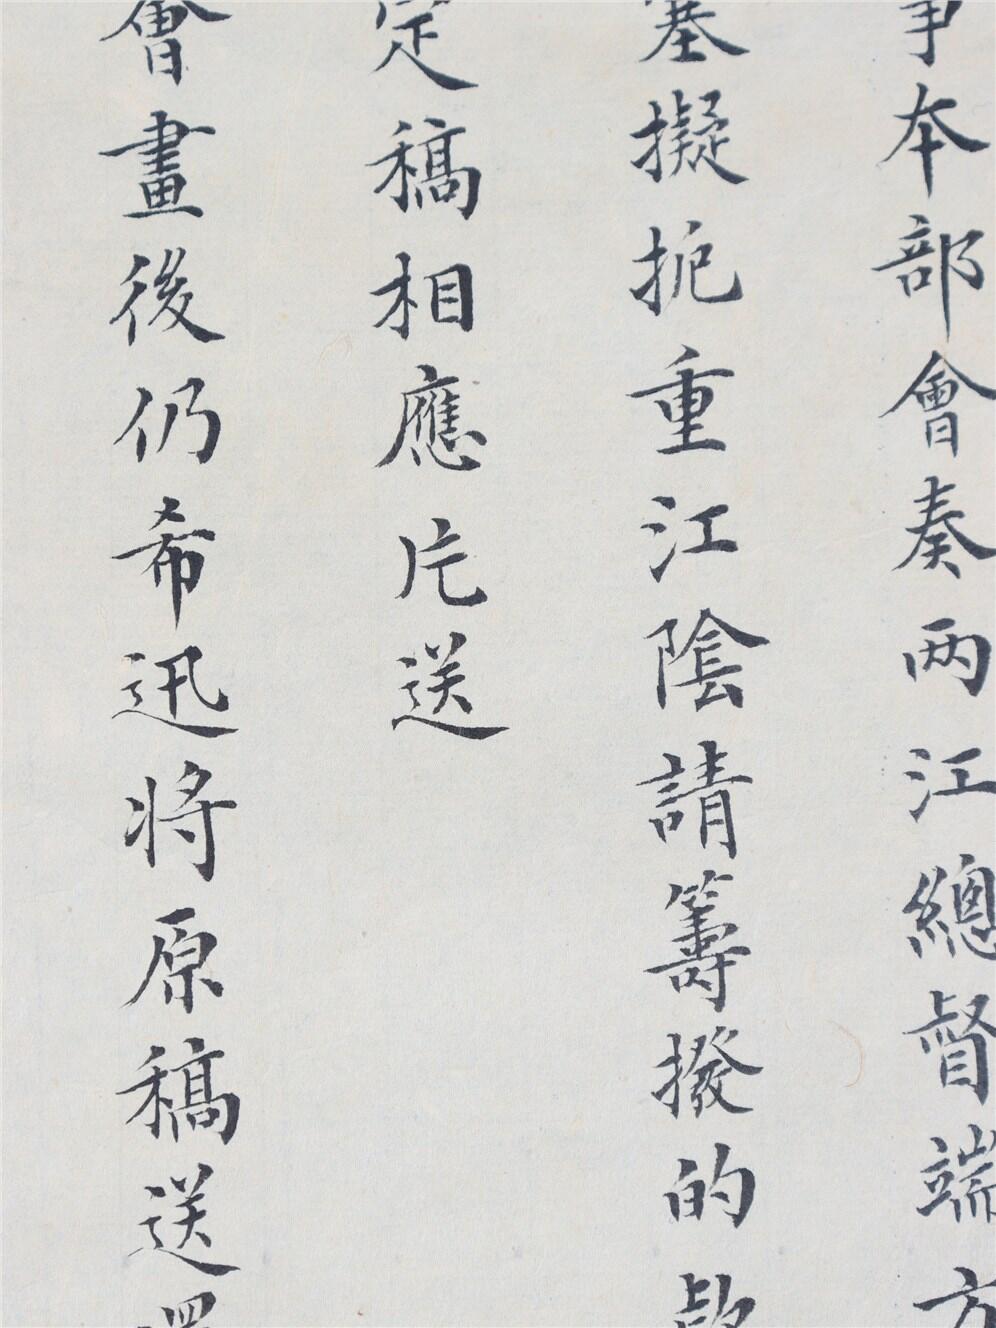 事本部會奏两江總督端方
塞擬扼重江陰請籌撥的款
定稿相應片送
會畫後仍希迅将原稿送還